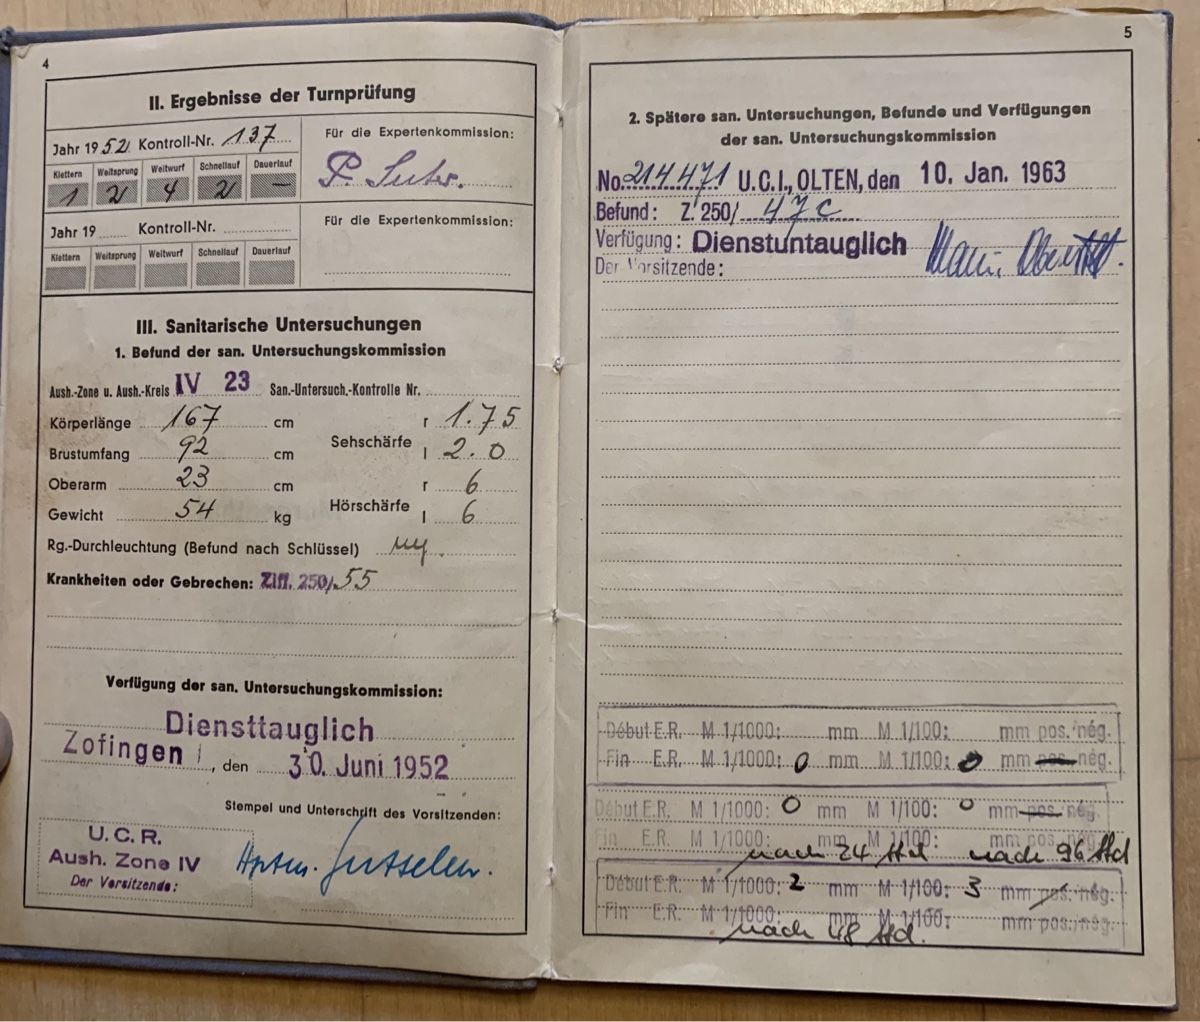 4
II. Ergebnisse der Turnprüfung
Jahr 1952 Kontroll-Nr. 137 Für die Expertenkommission:
Klettern Weitsprung Weitwurf Schnellauf Dauerlauf
1 2 4 2 —
P. Suter.
Jahr 19 Kontroll-Nr. Für die Expertenkommission:
Klettern Weitsprung Weitwurf Schnellauf Dauerlauf
III. Sanitarische Untersuchungen
1. Befund der san. Untersuchungskommission
Aush.-Zone u. Aush.-Kreis IV 23 San.-Untersuch.-Kontrolle Nr.
Körperlänge 167 cm
Brustumfang 92 cm
Oberarm 23 cm
Gewicht 54 kg
Sehschärfe r 1.75
l 2.0
Hörschärfe r 6
l 6
Rg.-Durchleuchtung (Befund nach Schlüssel)
Krankheiten oder Gebrechen: Ziff. 250/ 55
Verfügung der san. Untersuchungskommission:
Diensttauglich
Zofingen, den 30. Juni 1952
Stempel und Unterschrift des Vorsitzenden:
U. C. R.
Aush. Zone IV
Der Vorsitzende:
5
2. Spätere san. Untersuchungen, Befunde und Verfügungen
der san. Untersuchungskommission
No. 214471 U.C.I., OLTEN, den 10. Jan. 1963
Befund: Z. 250/ 47c
Verfügung: Dienstuntauglich
Der Vorsitzende:
Début E.R. M 1/1000: mm M 1/100: mm pos./nég.
Fin E.R. M 1/1000: 0 mm M 1/100: 0 mm pos. nég.
Début E.R. M 1/1000: 0 mm M 1/100: 0 mm pos. nég.
Fin E.R. M 1/1000: mm M 1/100: mm pos./nég.
nach 24 Std nach 96 Std
Début E.R. M 1/1000: 2 mm M 1/100: 3 mm pos./nég.
Fin E.R. M 1/1000: mm M 1/100: mm pos./nég.
nach 48 Std.